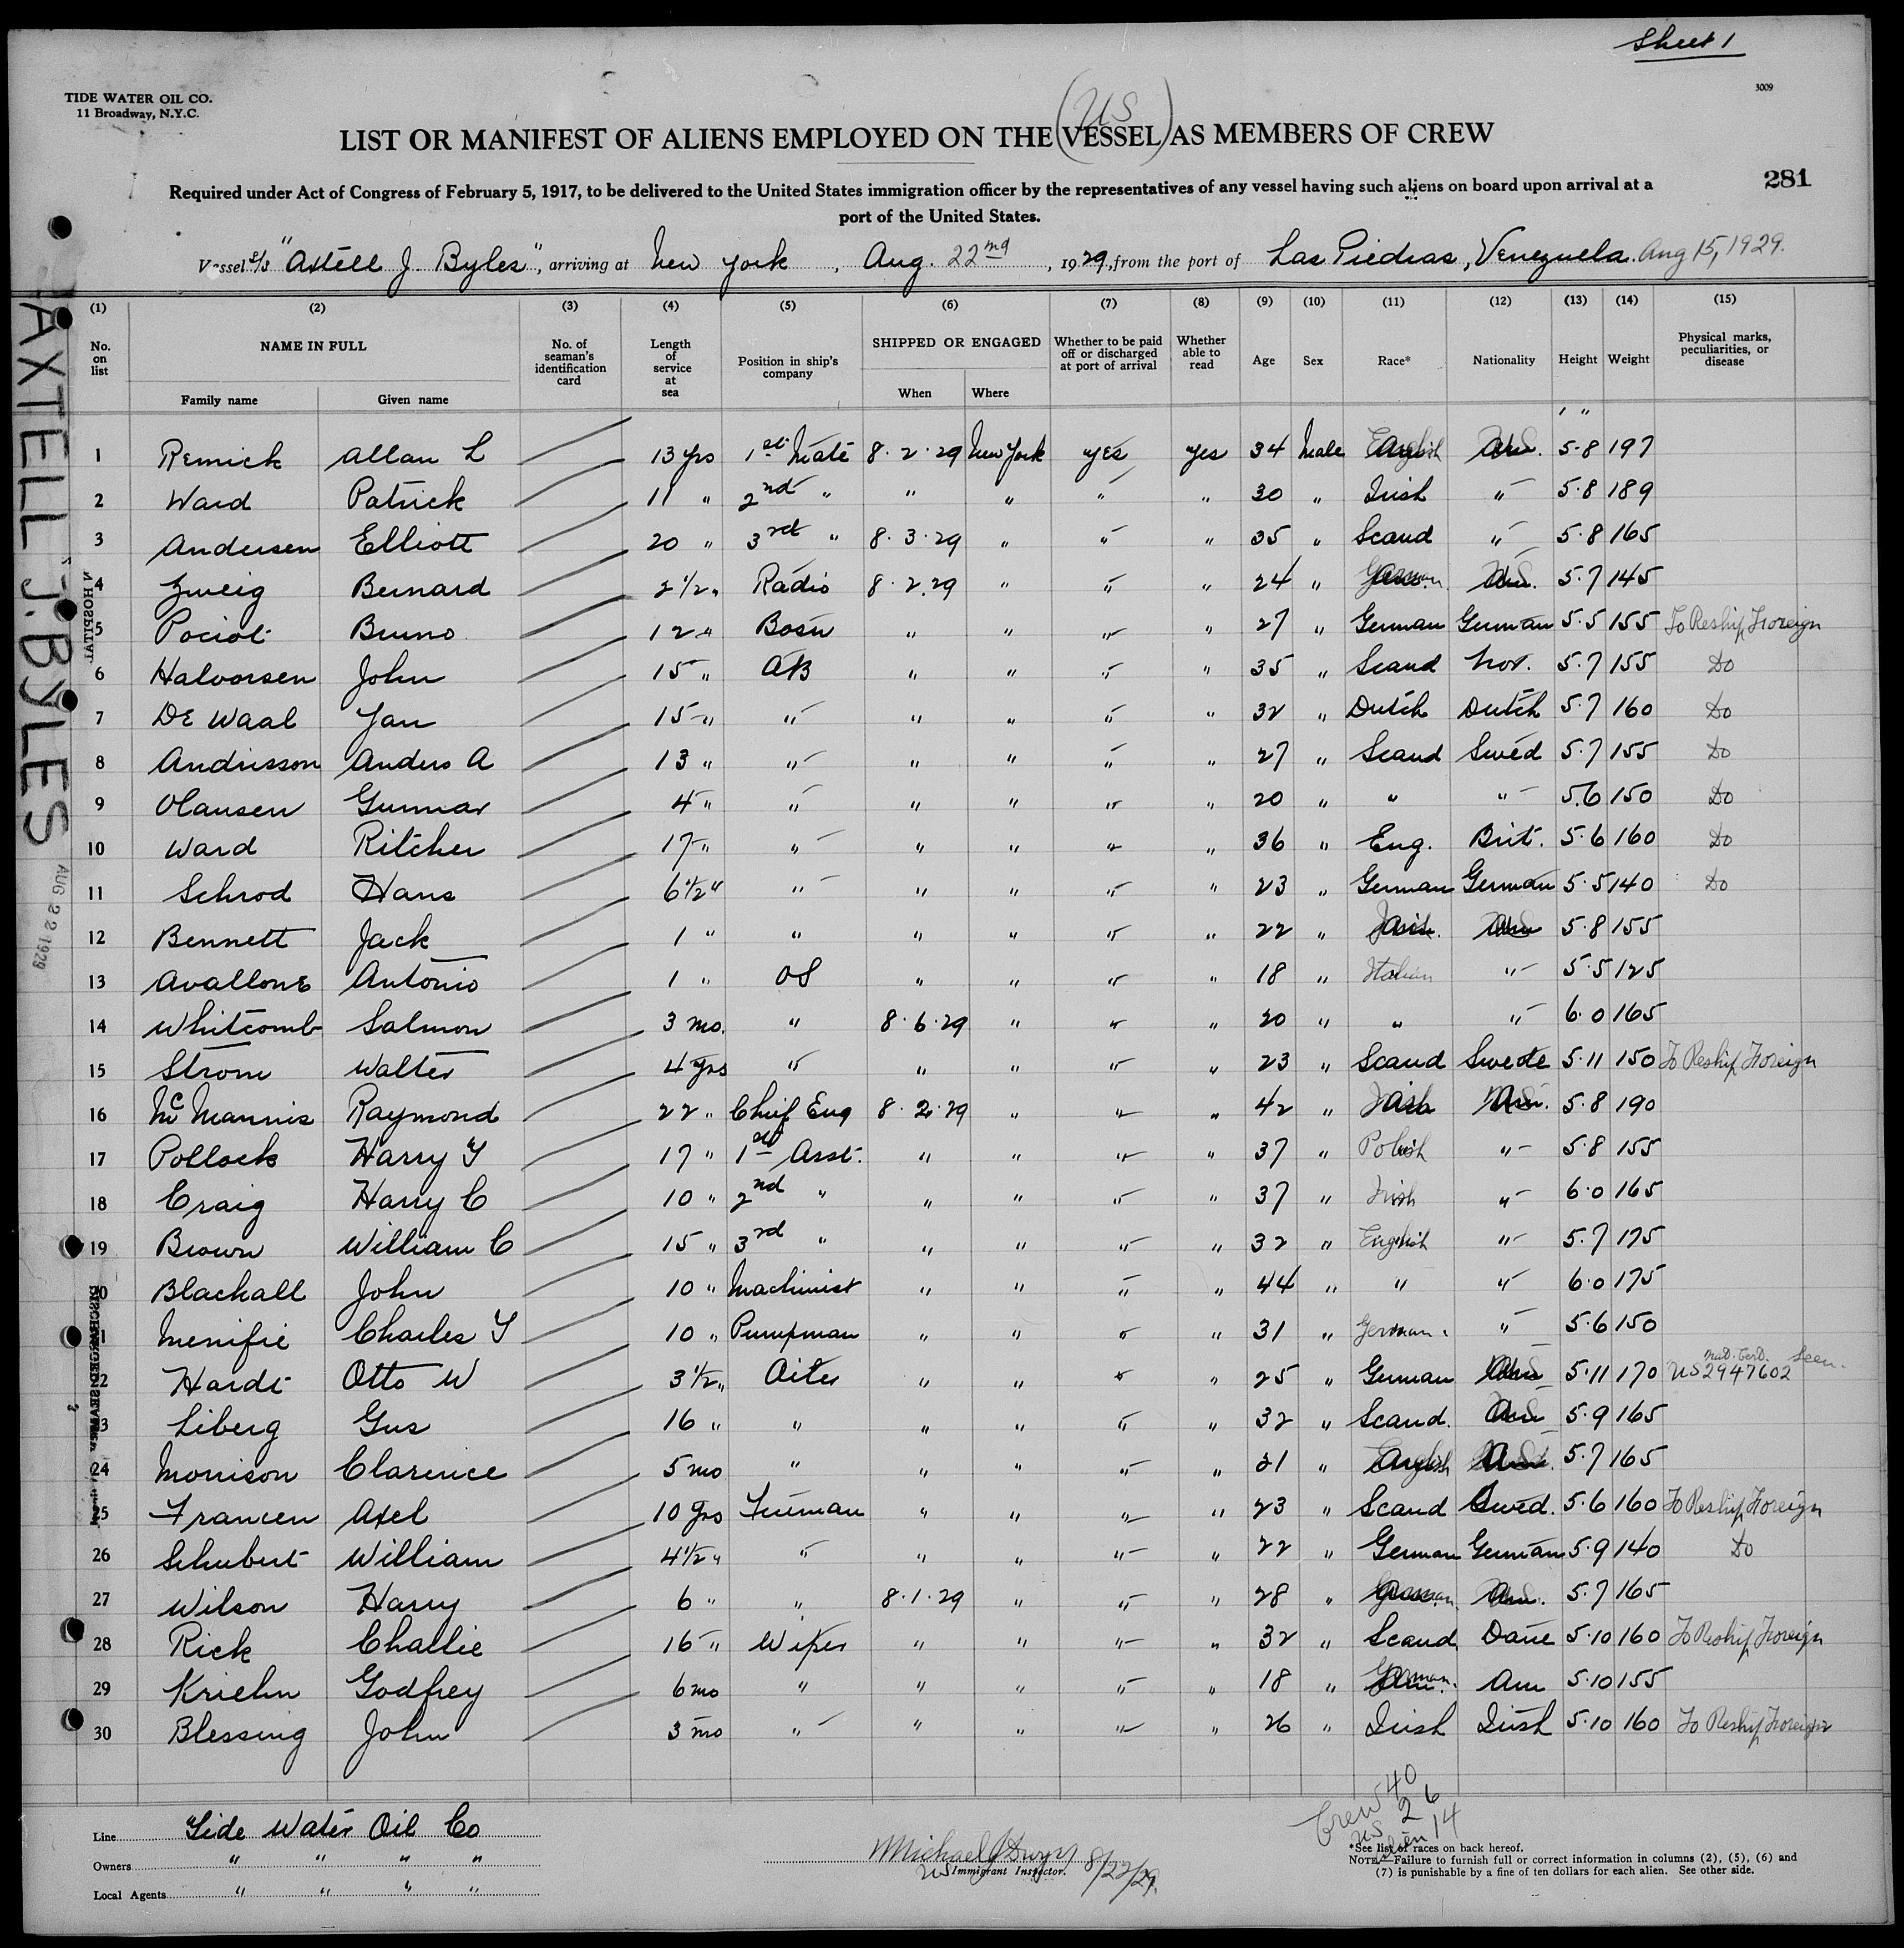 Sheet 1
TIDE WATER OIL CO.
11 Broadway, N.Y.C.
3009
(US)
LIST OR MANIFEST OF ALIENS EMPLOYED ON THE VESSEL AS MEMBERS OF CREW
281
Required under Act of Congress of February 5, 1917, to be delivered to the United States immigration officer by the representatives of any vessel having such aliens on board upon arrival at a
port of the United States.
Vessel S/S "Axtell J. Byles", arriving at New York, Aug. 22nd, 1929, from the port of Las Piedras, Venezuela. Aug 15, 1929.
(1) (2) (3) (4) (5) (6) (7) (8) (9) (10) (11) (12) (13) (14) (15)
No. on list NAME IN FULL No. of seaman's identification card Length of service at sea Position in ship's company SHIPPED OR ENGAGED Whether to be paid off or discharged at port of arrival Whether able to read Age Sex Race* Nationality Height Weight Physical marks, peculiarities, or disease
Family name Given name When Where
' "
1 Remick Allan L 13 yrs 1st Mate 8.2.29 New York yes yes 34 Male English 5-8 197
2 Ward Patrick 11 " 2nd " " " " " 30 " Irish " 5.8 189
3 Andersen Elliott 20 " 3rd " 8.3.29 " " " 35 " Scand " 5.8 165
4 Zweig Bernard 2 1/2 " Radio 8.2.29 " " " 24 " German U.S. 5.7 145
5 Pociot Bruno 12 " Bosn " " " " 27 " German German 5.5 155 To Reship Foreign
6 Halvorsen John 15 " AB " " " " 35 " Scand Nor. 5.7 155 Do
7 De Waal Jan 15 " " " " " " 32 " Dutch Dutch 5.7 160 Do
8 Andrisson Anders A 13 " " " " " " 27 " Scand Swed 5.7 155 Do
9 Olausen Gunnar 4 " " " " " " 20 " " " 5.6 150 Do
10 Ward Ritcher 17 " " " " " " 36 " Eng. Brit. 5.6 160 Do
11 Schrod Hans 6 1/2 " " " " " " 23 " German German 5.5 140 Do
12 Bennett Jack 1 " " " " " " 22 " 5.8 155
13 Avallone Antonio 1 " OS " " " " 18 " Italian " 5.5 125
14 Whitcomb Salmon 3 mo. " 8.6.29 " " " 20 " " " 6.0 165
15 Strom Walter 4 yrs " " " " " 23 " Scand Swede 5.11 150 To Reship Foreign
16 McMannis Raymond 22 " Chief Eng 8.2.29 " " " 42 " Irish U.S. 5.8 190
17 Pollock Harry Y 17 " 1st Asst. " " " " 37 " Polish " 5.8 155
18 Craig Harry C 10 " 2nd " " " " " 37 " Irish " 6.0 165
19 Brown William C 15 " 3rd " " " " " 32 " English " 5.7 175
20 Blackall John 10 " Machinist " " " " 44 " " " 6.0 175
21 Menifie Charles Y 10 " Pumpman " " " " 31 " German " 5.6 150
22 Hardt Otto W 3 1/2 " Oiler " " " " 25 " German U.S. 5.11 170 Nat. Cert. Seen. US 2947602
23 Liberg Gus 16 " " " " " " 32 " Scand. U.S. 5.9 165
24 Morrison Clarence 5 mo " " " " " 21 " English U.S. 5.7 165
25 Francen Axel 10 yrs Fireman " " " " 23 " Scand Swed. 5.6 160 To Reship Foreign
26 Schubert William 4 1/2 " " " " " " 22 " German German 5.9 140 Do
27 Wilson Harry 6 " " 8.1.29 " " " 28 " German U.S. 5.7 165
28 Rick Challie 16 " Wiper " " " " 32 " Scand Dane 5.10 160 To Reship Foreign
29 Kriehn Godfrey 6 mo " " " " " 18 " German Am 5.10 155
30 Blessing John 3 mo " " " " " 26 " Irish Irish 5.10 160 To Reship Foreign
Crew 40
US 26
Alien 14
Line Tide Water Oil Co
Owners " " " "
Local Agents " " " "
Michael J Dwyer 8/22/29.
US Immigrant Inspector.
*See list of races on back hereof.
NOTE.—Failure to furnish full or correct information in columns (2), (5), (6) and
(7) is punishable by a fine of ten dollars for each alien. See other side.
AXTELL J. BYLES
AUG 22 1929
HOSPITAL